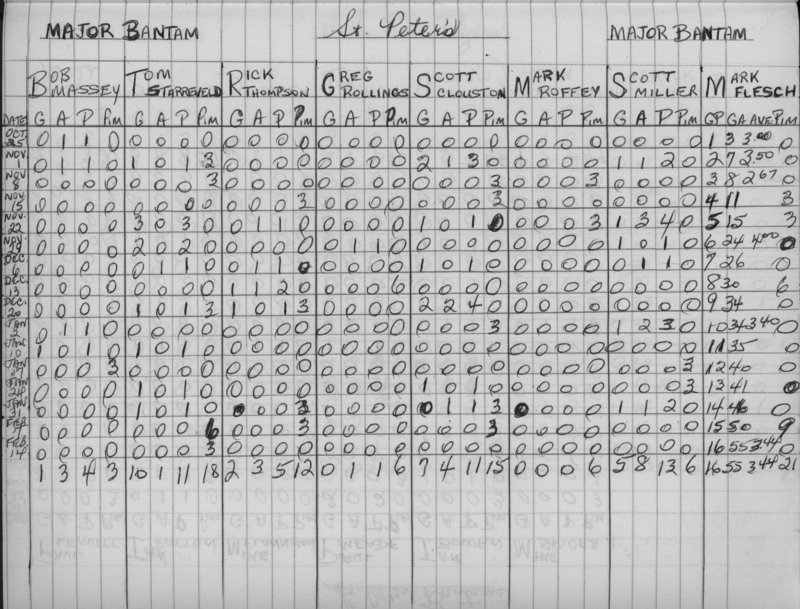 MAJOR BANTAM St. Peter's MAJOR BANTAM
BOB MASSEY TOM STARREVELD RICK THOMPSON GREG ROLLINGS SCOTT CLOUSTON MARK ROFFEY SCOTT MILLER MARK FLESCH
DATE G A P Pim G A P Pim G A P Pim G A P Pim G A P Pim G A P Pim G A P Pim GP GA AVE Pim
OCT. 25 0 1 1 0 0 0 0 0 0 0 0 0 0 0 0 0 0 0 0 0 0 0 0 0 0 0 0 0 1 3 3.00 0
NOV. 1 0 1 1 0 1 0 1 3 0 0 0 0 0 0 0 0 2 1 3 0 0 0 0 0 1 1 2 0 2 7 3.50 0
NOV 8 0 0 0 0 0 0 0 3 0 0 0 0 0 0 0 0 0 0 0 3 0 0 0 3 0 0 0 0 3 8 2.67 0
NOV. 15 0 0 0 0 0 0 0 0 0 0 0 3 0 0 0 0 0 0 0 3 0 0 0 0 0 0 0 0 4 11 3
NOV. 22 0 0 0 0 3 0 3 0 0 1 1 0 0 0 0 0 1 0 1 0 0 0 0 3 1 3 4 0 5 15 3
NOV. 29 0 0 0 0 2 0 2 0 0 0 0 0 0 1 1 0 0 0 0 0 0 0 0 0 1 0 1 0 6 24 4.00 0
DEC. 6 0 0 0 0 0 1 1 0 0 1 1 0 0 0 0 0 1 0 1 0 0 0 0 0 0 1 1 0 7 26 0
DEC. 13 0 0 0 0 0 0 0 0 1 1 2 0 0 0 0 6 0 0 0 0 0 0 0 0 0 0 0 0 8 30 6
DEC. 20 0 0 0 0 1 0 1 3 1 0 1 3 0 0 0 0 2 2 4 0 0 0 0 0 0 0 0 0 9 34 0
JAN 0 1 1 0 0 0 0 0 0 0 0 0 0 0 0 0 0 0 0 3 0 0 0 0 1 2 3 0 10 34 3.40 0
JAN 10 1 0 1 0 1 0 1 0 0 0 0 0 0 0 0 0 0 0 0 0 0 0 0 0 0 0 0 0 11 35 0
JAN 0 0 0 3 0 0 0 0 0 0 0 0 0 0 0 0 0 0 0 0 0 0 0 0 0 0 0 3 12 40 0
JAN 24 0 0 0 0 1 0 1 0 0 0 0 0 0 0 0 0 1 0 1 0 0 0 0 0 0 0 0 3 13 41 0
JAN 31 0 0 0 0 1 0 1 0 0 0 0 3 0 0 0 0 0 1 1 3 0 0 0 0 1 1 2 0 14 46 0
FEB. 0 0 0 0 0 0 0 6 0 0 0 3 0 0 0 0 0 0 0 3 0 0 0 0 0 0 0 0 15 50 9
FEB 14 0 0 0 0 0 0 0 3 0 0 0 0 0 0 0 0 0 0 0 0 0 0 0 0 0 0 0 0 16 55 3.44 0
1 3 4 3 10 1 11 18 2 3 5 12 0 1 1 6 7 4 11 15 0 0 0 6 5 8 13 6 16 55 3.44 21